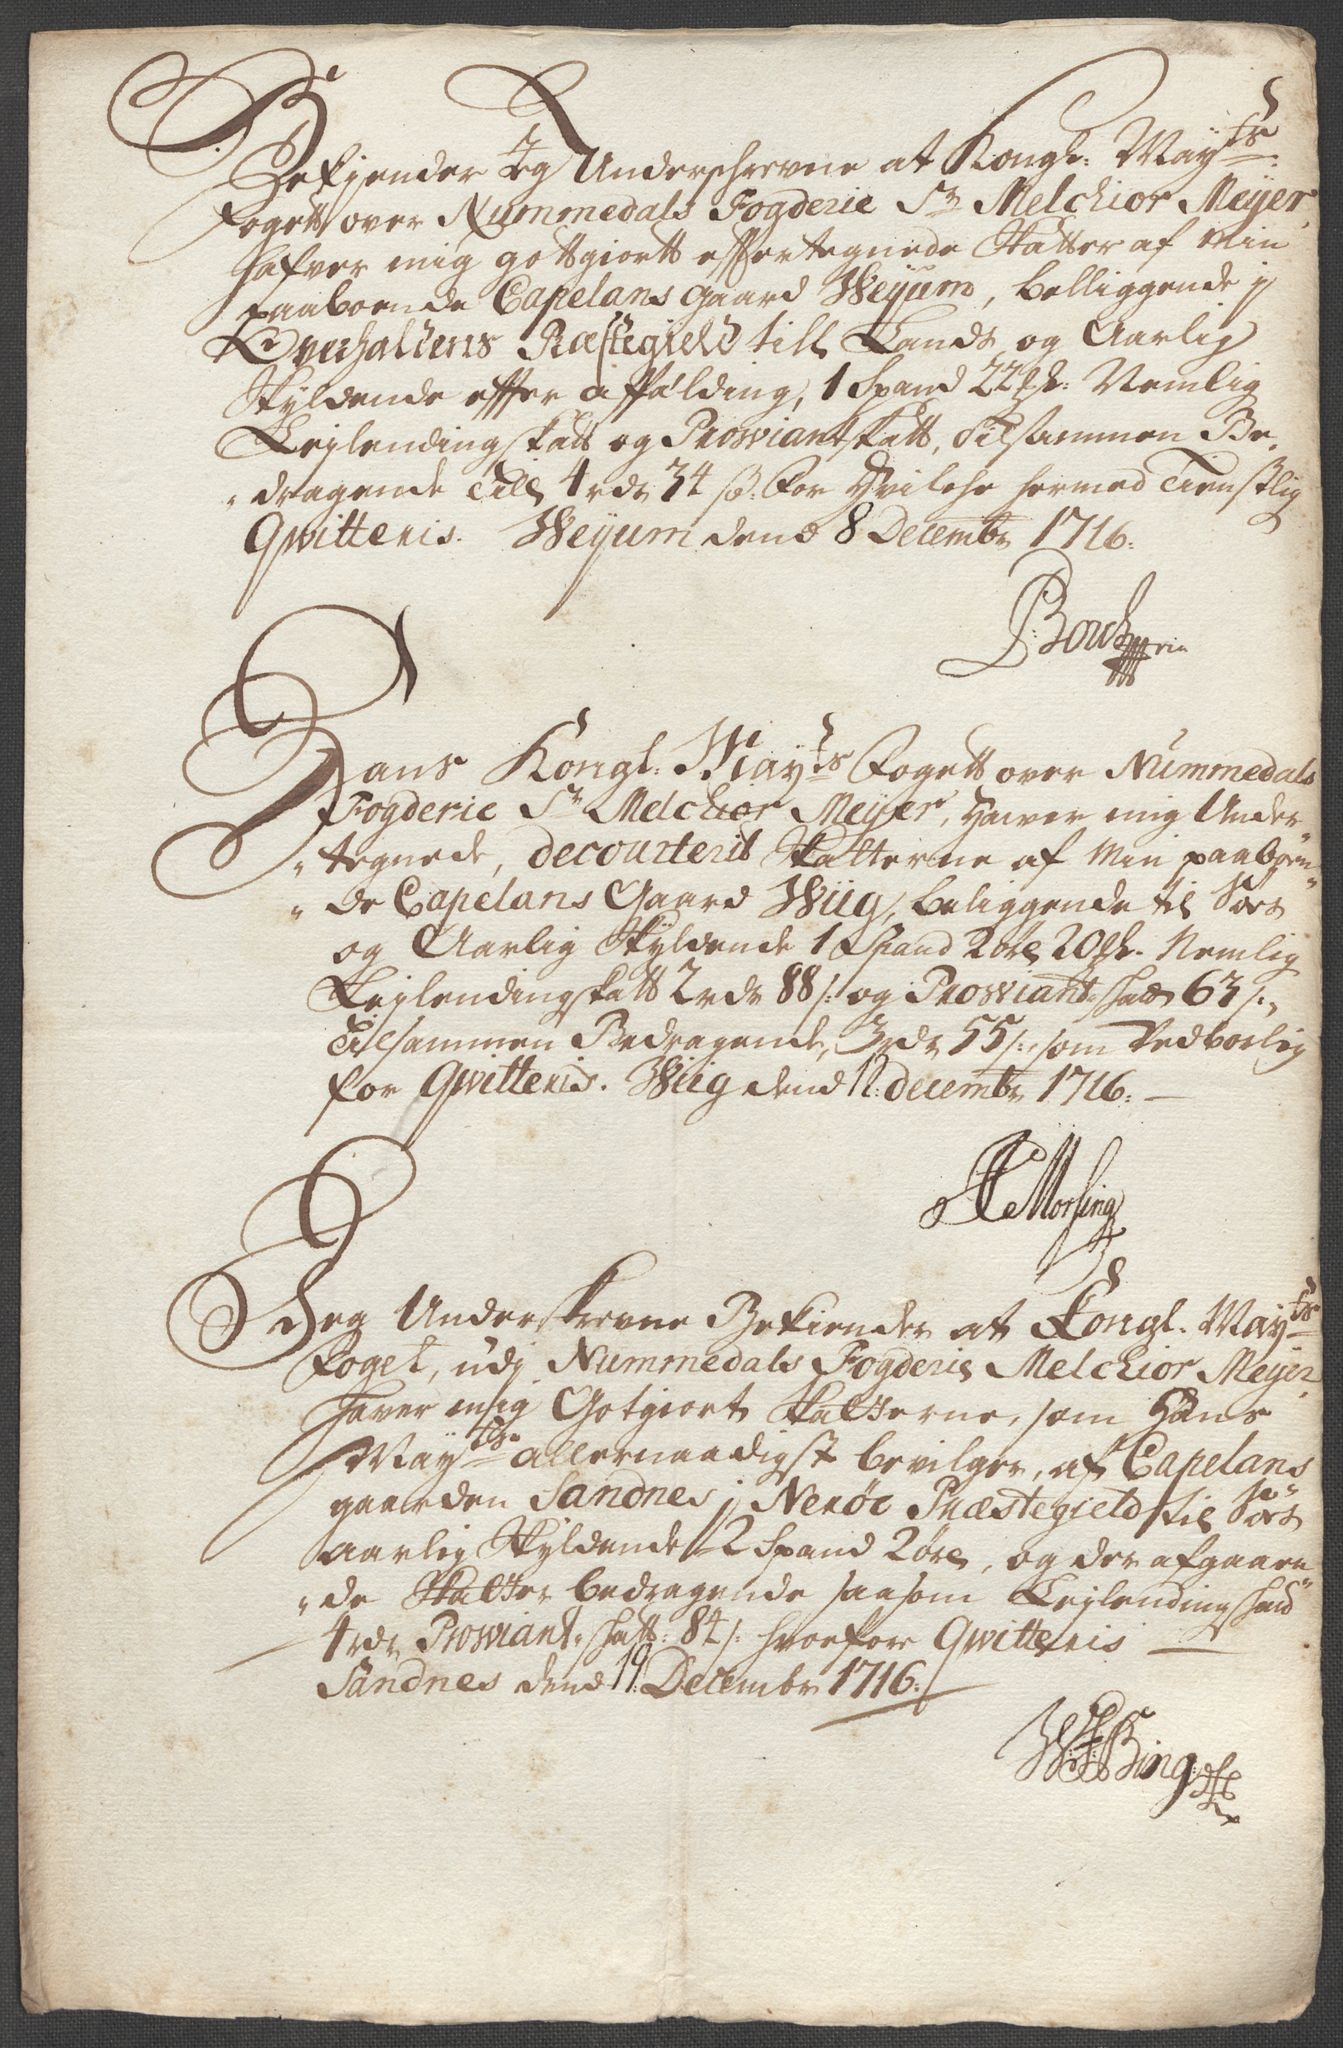 Bekjender Jeg Underschrevne at Kongl: Mayts:
Fogett over Nummedals Fogderie Sr Melchior Meyer
hafver mig gottgiortt effertegnede Skatter af min
paaboende Capelans gaard Weyum, belliggende j
Overhaldens Præstegield till Lands og Aarlig
Skyldende effter affælding, 1 Spand 22 Mk: Nemlig
Lejlendingskatt og Proviantskatt, tilsammen Be-
dragende Till 4 rdr 34 s: for Hvilche hermed Tienstlig
Qvitteris. Weyum dend 8 Decembr 1716.
P: Borch mria
Hans Kongl: Mayts Fogett over Nummedals
Fogderie Sr Melchior Meyer, Haver mig Under-
tegnede, decourterit Skatterne af Min paaboen-
de Capelans Gaard Wiig, beliggende til Sørs
og Aarlig Skyldende 1 Spand 2 øre 20 Mk. Nemlig
Lejlendingskatt 2 rdr 88 s: og Proviantschatt 63 s:,
Tilsammen Bedragende, 3 rdr 55 s:, som Vedborlig
for Qvitteris. Wiig dend 12 decembr 1716. —
Morsing
Jeg Underskrevne Bekiender at Kongl. Mayts
Foget, udj Nummedals Fogderie Melchior Meyer
haver mig Gotgiort Skatterne, som Hans
Mayts allernaadigst bevilger, af Capelans
gaarden Sandnes j Nerøe Præstegield til Sørs
aarlig Skyldende 2 Spand 2 øre, og der afgaaen-
de Skatter bedragende saasom Lejlendingschatt
4 rdr Proviant-schatt: 84 s: hvorfore Qvitteris
Sandnes dend 19 Decembr 1716.
Bing